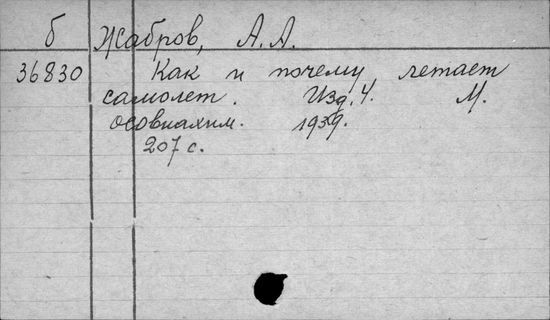 б Жабров, А.А.
36830 Как и почему летает
самолет. Изд. 4. М.
осовиахим. 1939.
207 с.